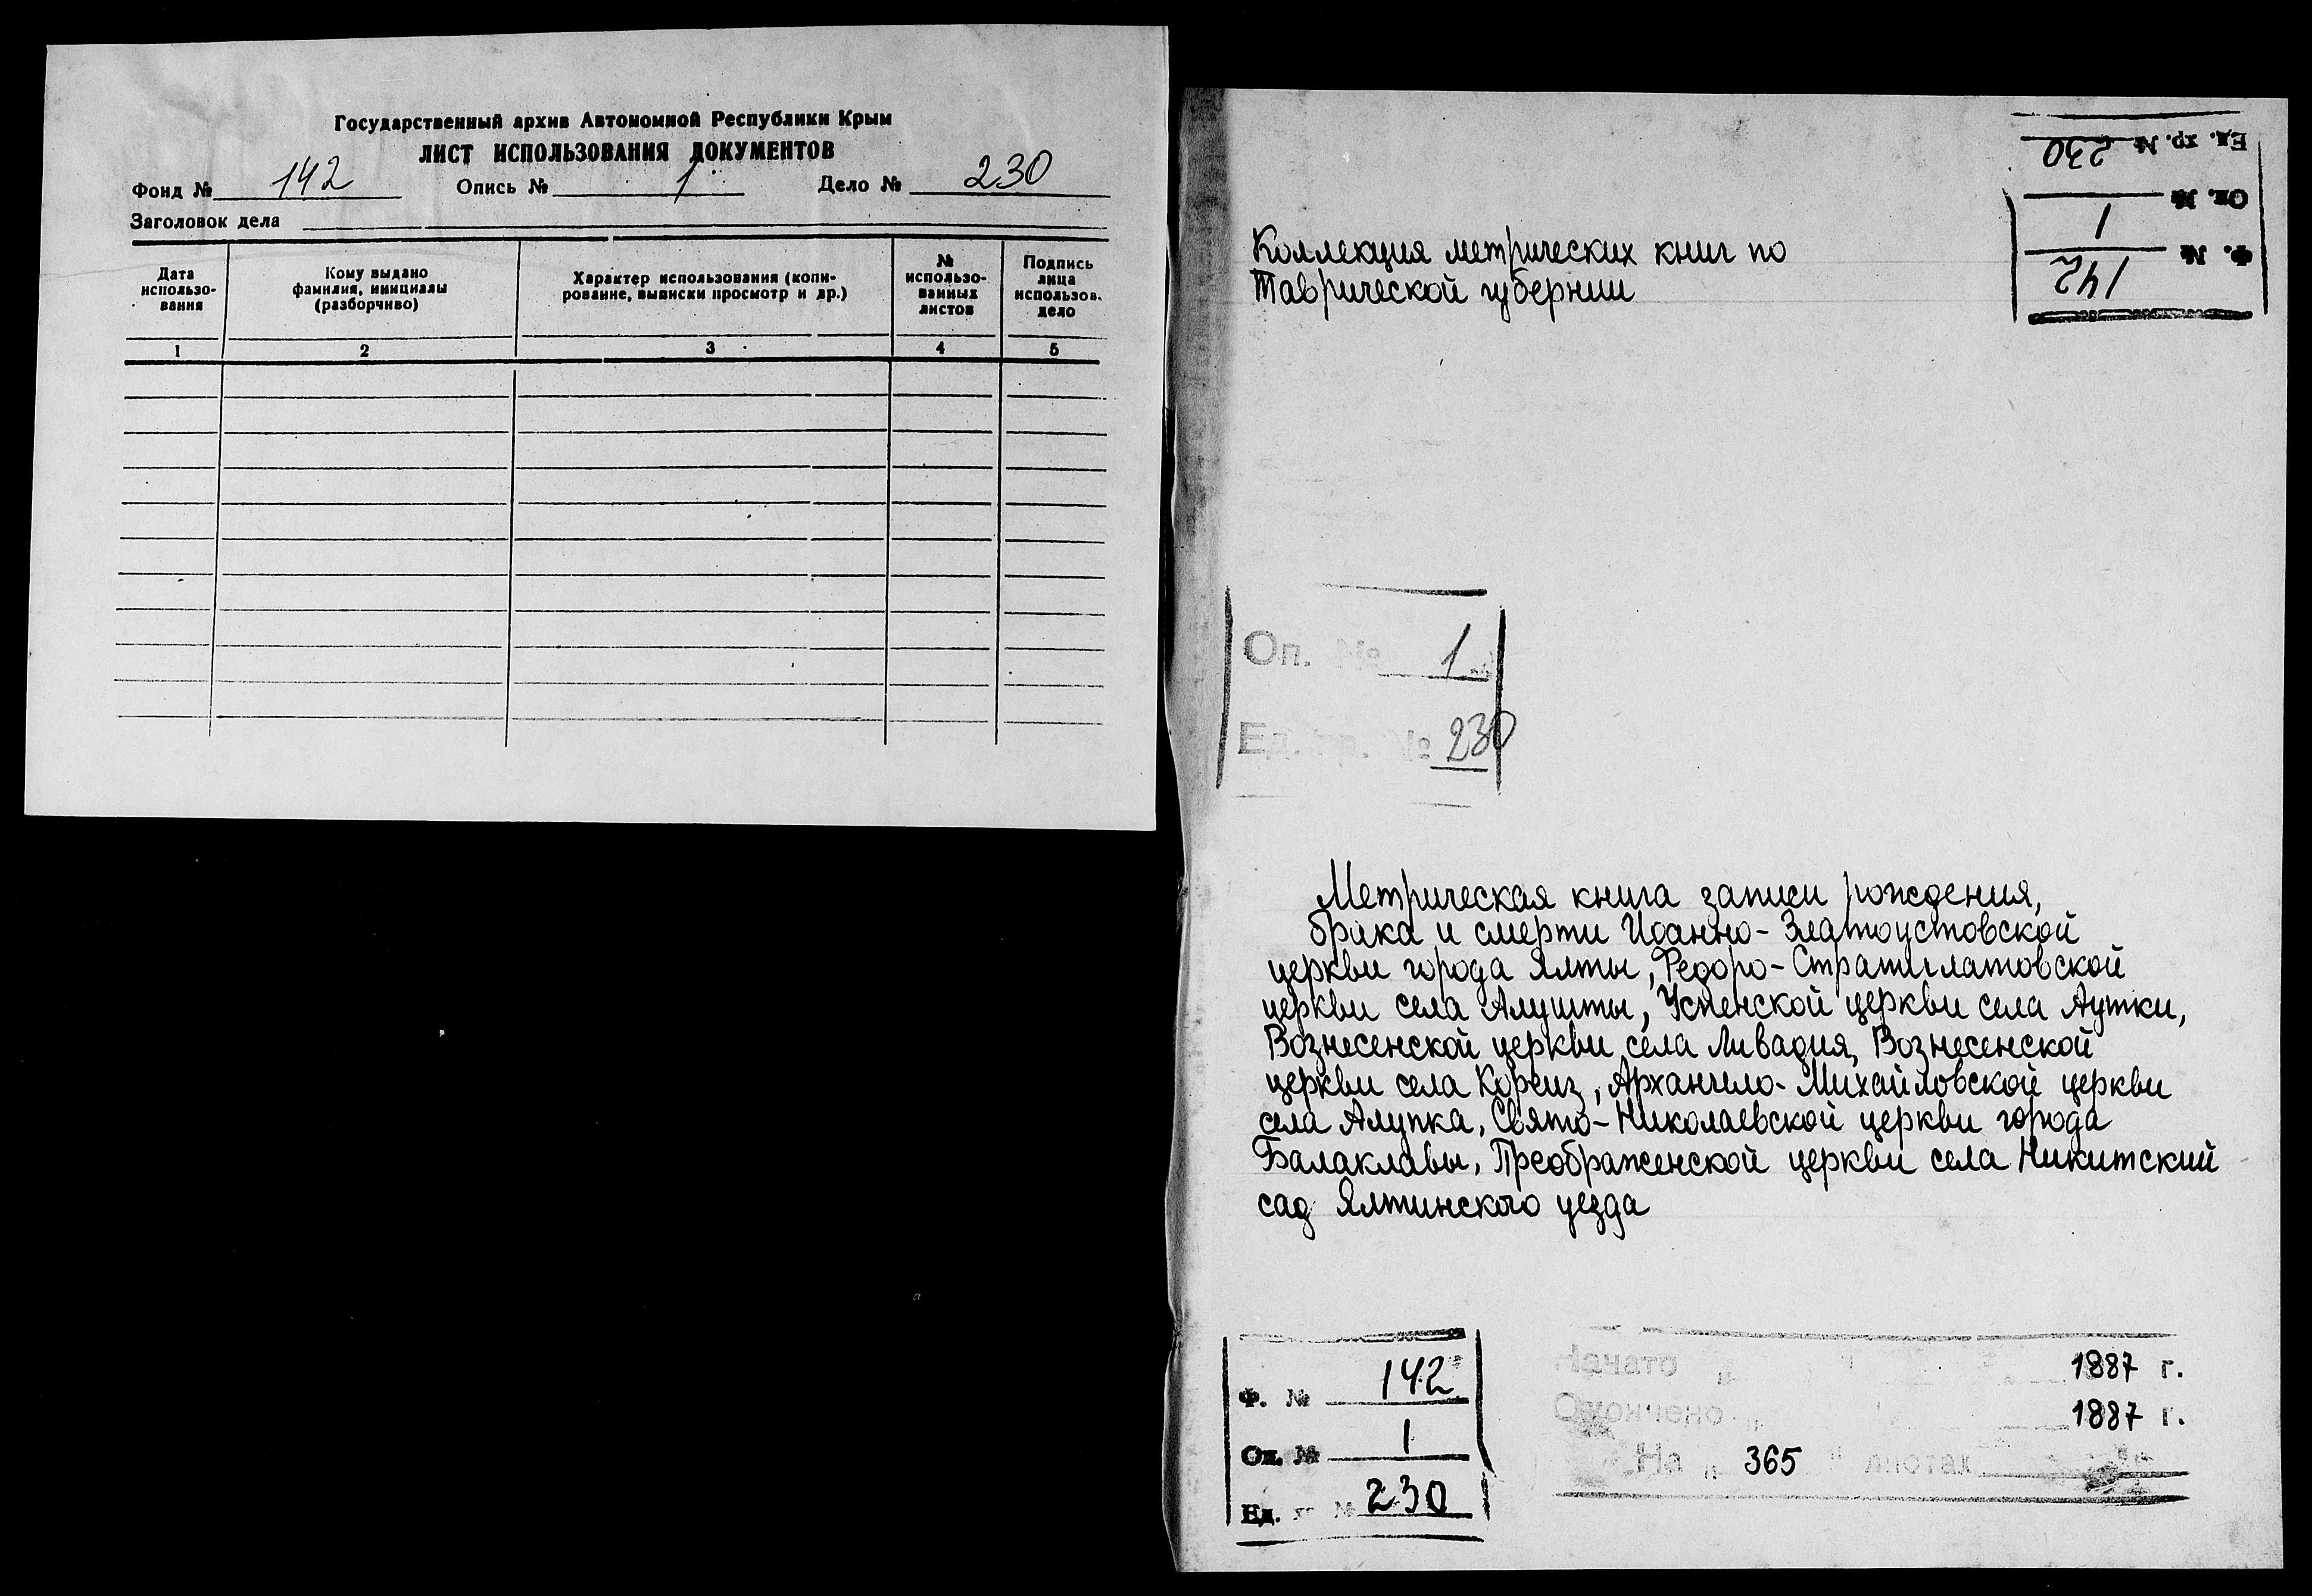 Государственный архив Автономной Республики Крым
ЛИСТ ИСПОЛЬЗОВАНИЯ ДОКУМЕНТОВ
Фонд № 142 Опись № 1 Дело № 230
Заголовок дела
Дата использо-вания
Кому выдано фамилия, инициалы (разборчиво)
Характер использования (копи-рование, выписки просмотр и др.)
№ использо-ванных листов
Подпись лица использов. дело
1 2 3 4 5
Ед. хр. № 230
Оп. № 1
Ф. № 142
Коллекция метрических книг по
Таврической губернии
Оп. № 1
Ед. хр. № 230
Метрическая книга записи рождения,
брака и смерти Иоанно-Златоустовской
церкви города Ялты, Федоро-Стратилатовской
церкви села Алушты, Успенской церкви села Аутки,
Вознесенской церкви села Ливадия, Вознесенской
церкви села Кореиз, Архангело-Михайловской церкви
села Алупка, Свято-Николаевской церкви города
Балаклавы, Преображенской церкви села Никитский
сад Ялтинского уезда
Ф. № 142
Оп. № 1
Ед. хр № 230
Начато " 1887 г.
Окончено " 1887 г.
На " 365 " листах